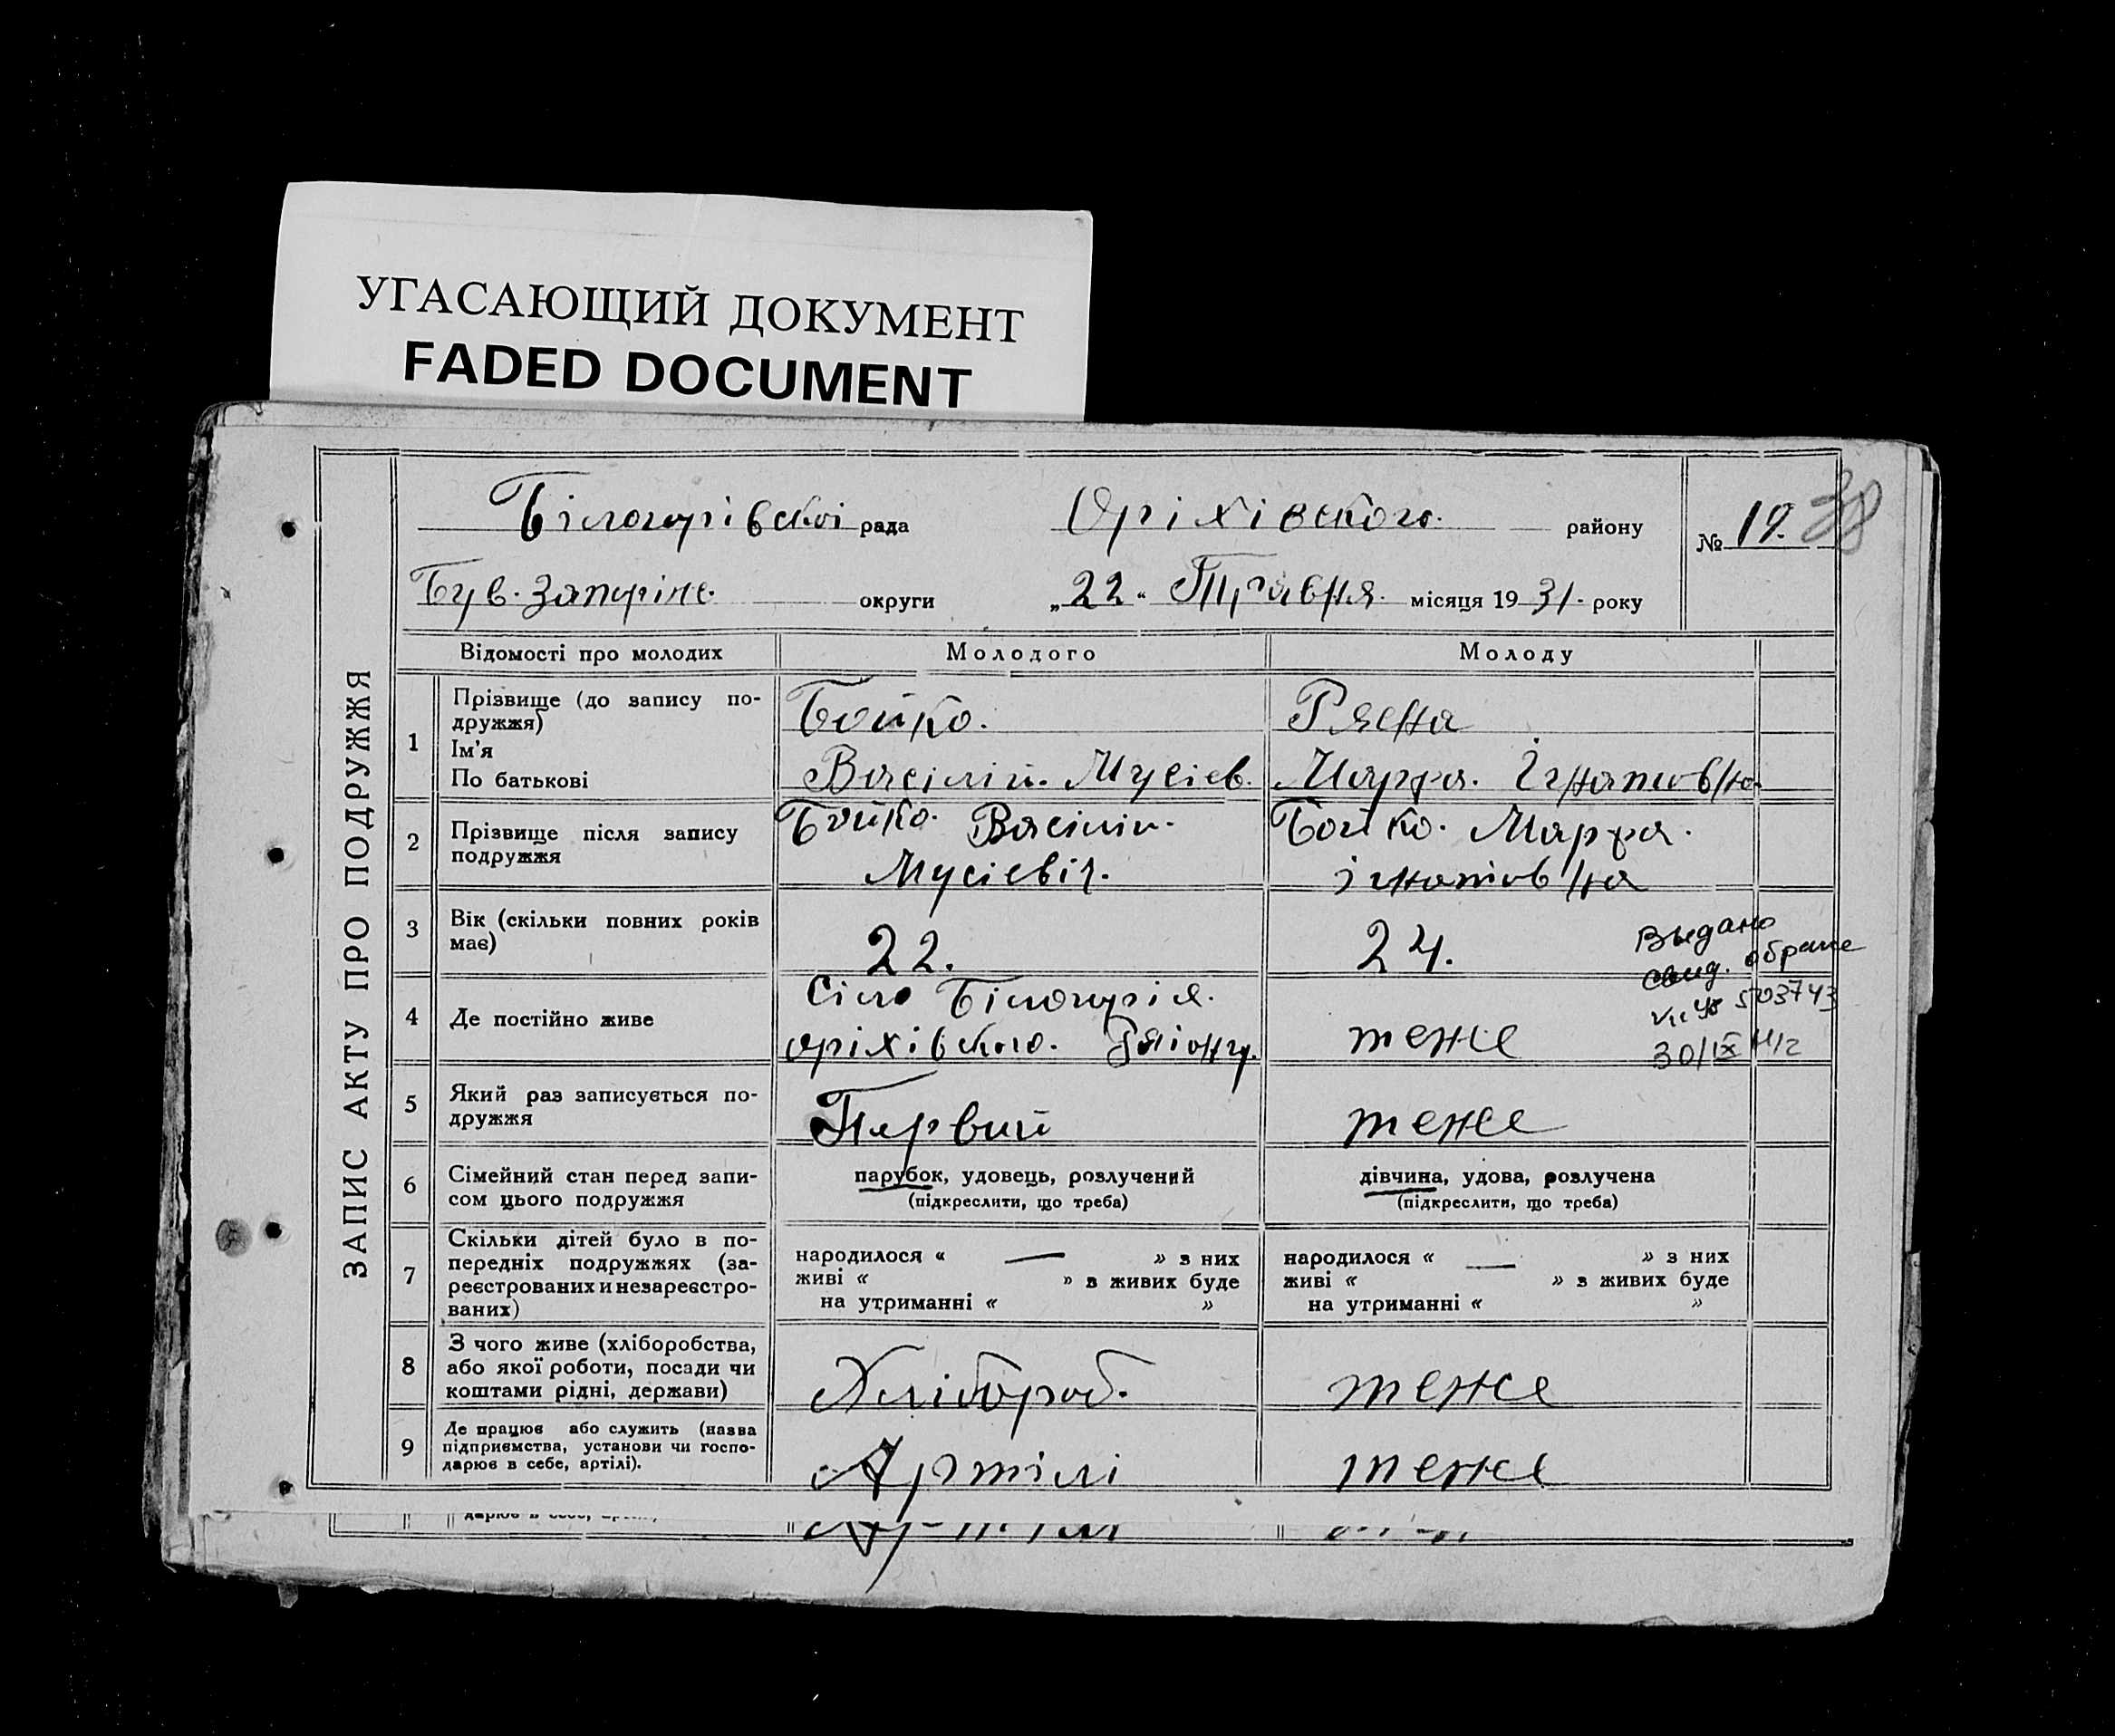 УГАСАЮЩИЙ ДОКУМЕНТ
FADED DOCUMENT
ЗАПИС АКТУ ПРО ПОДРУЖЖЯ
Білогорівскої рада Оріхівского. району № 19. 38
Був. Запоріж. округи „22“ Травня. місяця 1931. року
Відомості про молодих Молодого Молоду
1 Прізвище (до запису по-
дружжя)
Ім'я
По батькові
Бойко.
Васілій. Мусієв.
Рясна
Марфа. Ігнатовна
2 Прізвище після запису
подружжя
Бойко. Васілій.
Мусієвіч.
Бойко. Марфа.
ігнатовна
3 Вік (скільки повних років
має)
22.
24.
Выдано
свид. о браке
503743
30/IX
4 Де постійно живе
Сіло Білогорія.
оріхівского. Раіону.
теже
5 Який раз записується по-
дружжя
Первий
теже
6 Сімейний стан перед запи-
сом цього подружжя
парубок, удовець, розлучений
(підкреслити, що треба)
дівчина, удова, розлучена
(підкреслити, що треба)
7 Скільки дітей було в по-
передніх подружжях (за-
реєстрованих и незареєстро-
ваних)
народилося « — » з них
живі « » в живих буде
на утриманні « »
народилося « — » з них
живі « » в живих буде
на утриманні « »
8 З чого живе (хліборобства,
або якої роботи, посади чи
коштами рідні, держави)
Хлібороб.
теже
9 Де працює або служить (назва
підприємства, установи чи госпо-
дарює в себе, артілі).
Артілі
теже